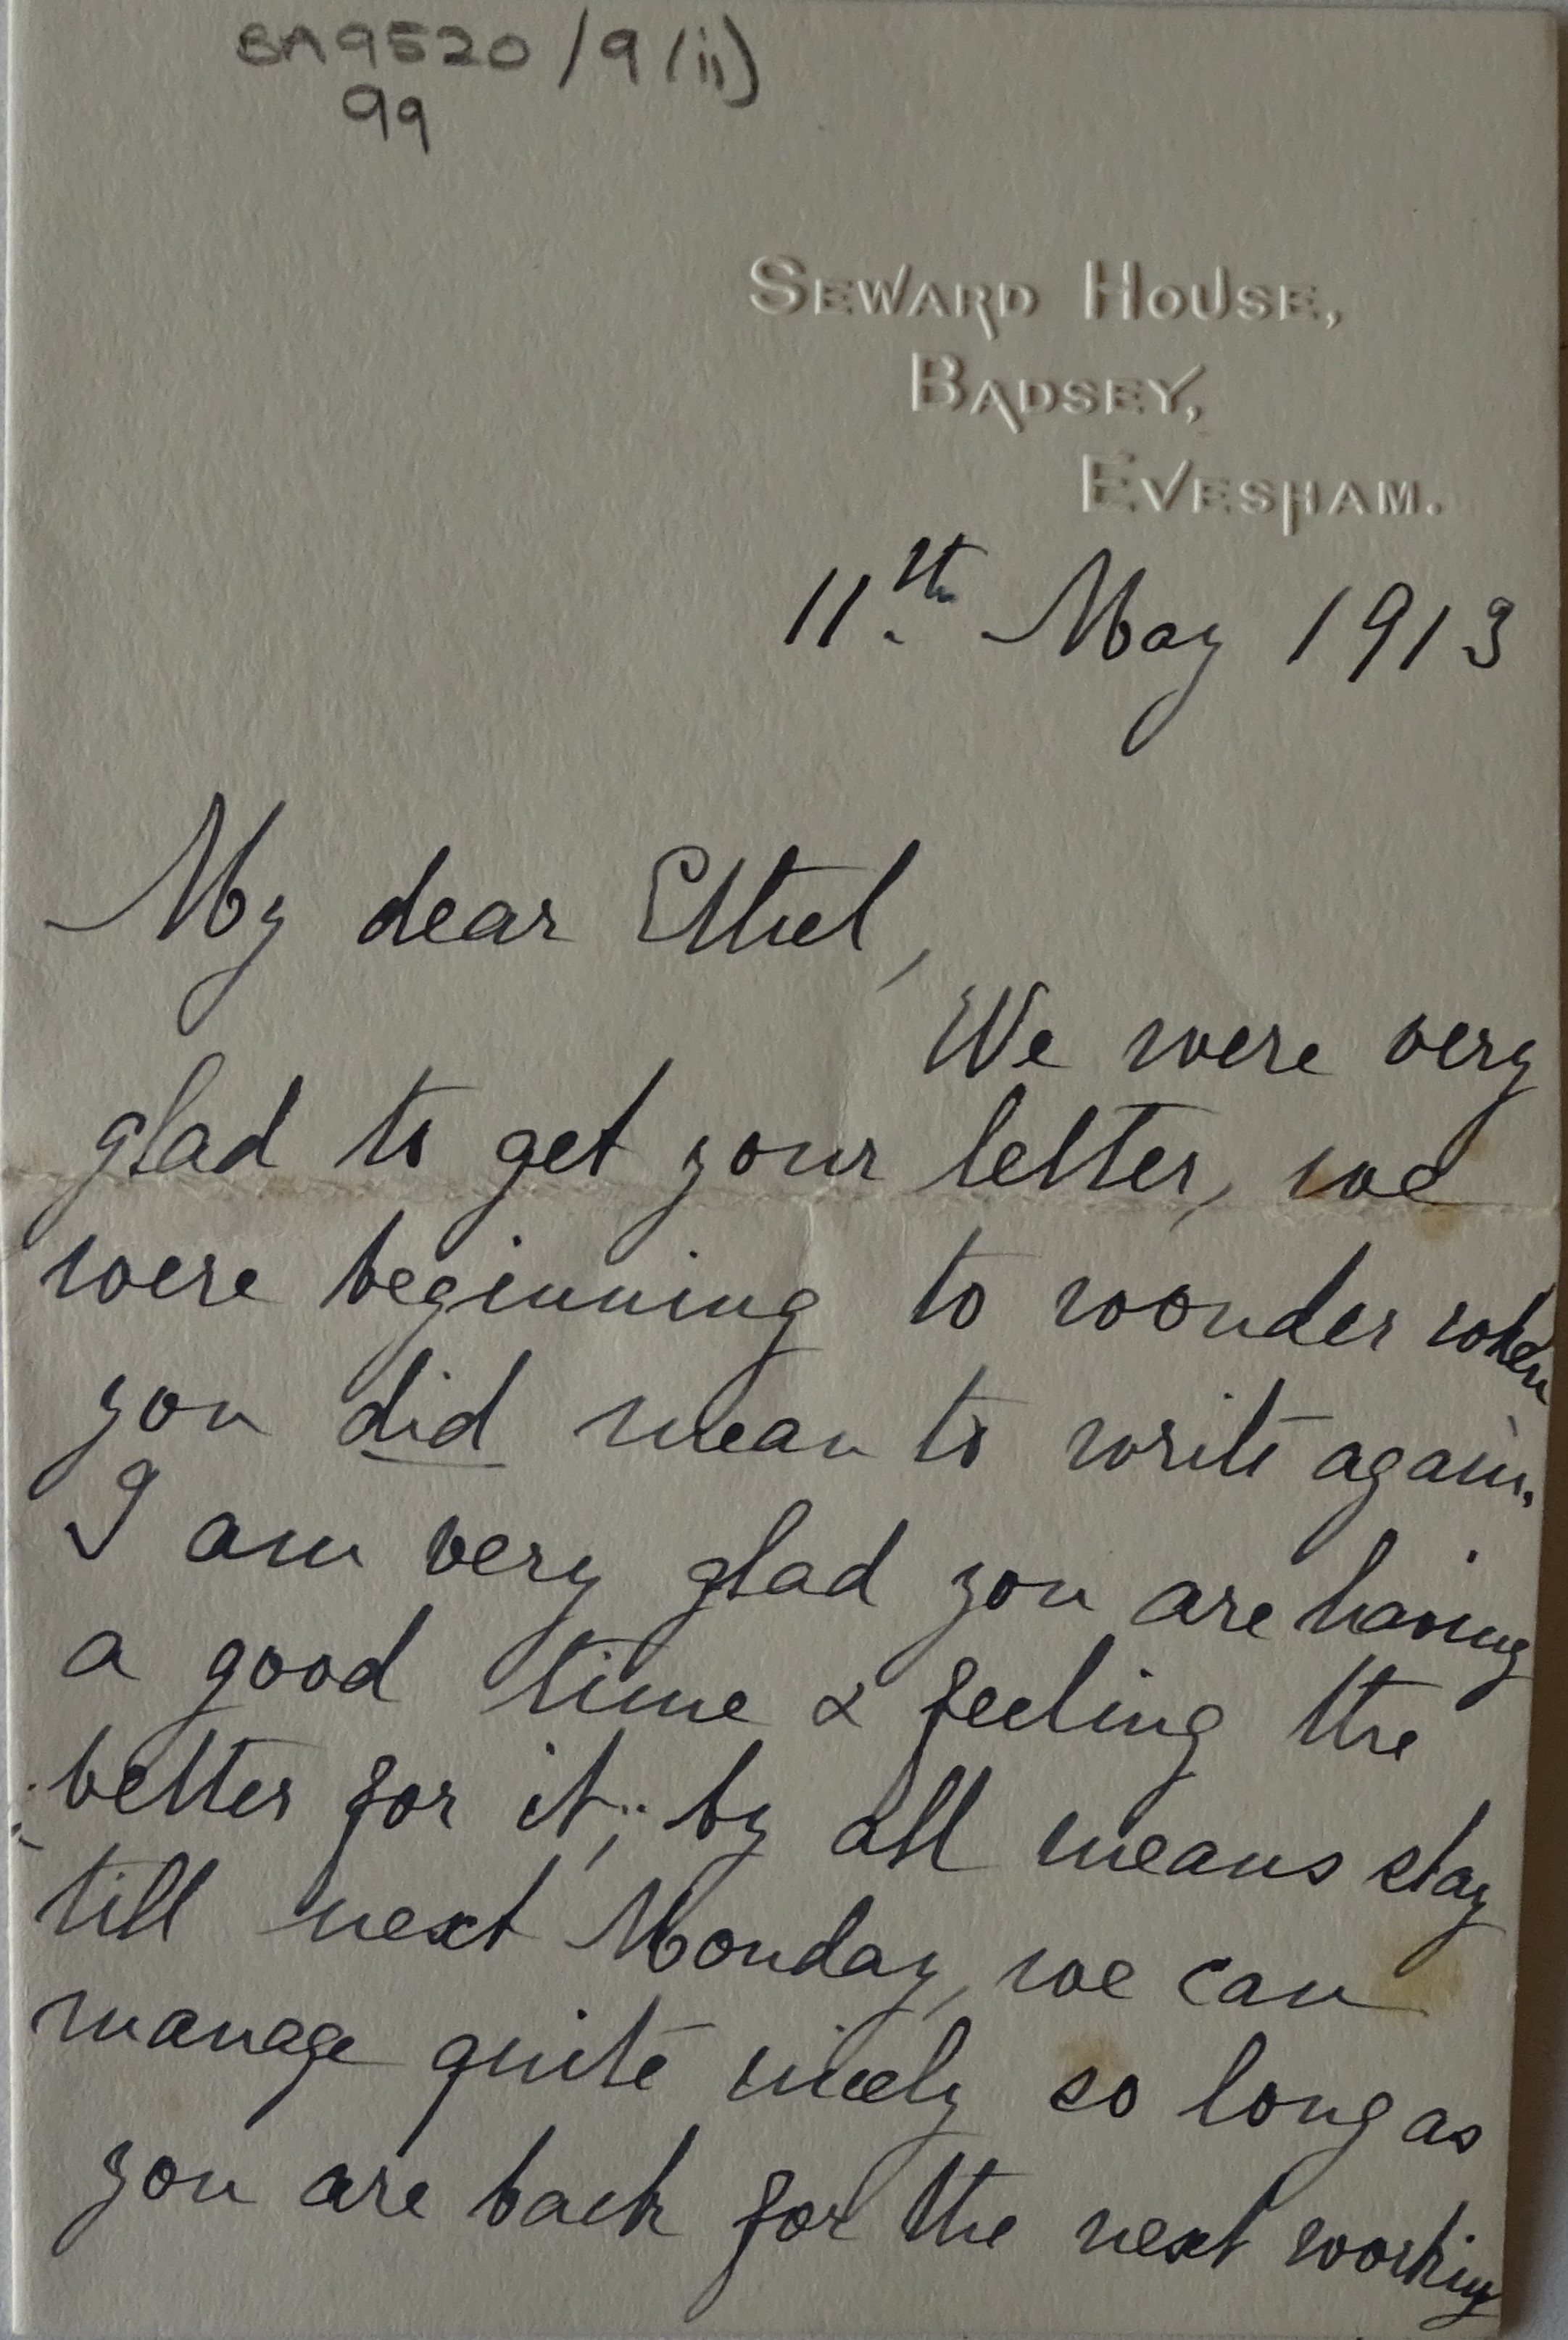 BA9520/9(ii)
99
SEWARD HOUSE,
BADSEY,
EVESHAM.
11th May 1913
My dear Ethel,
We were very
glad to get your letter, we
were beginning to wonder when
you did mean to write again.
I am very glad you are having
a good time & feeling the
better for it; by all means stay
till next Monday, we can
manage quite nicely so long as
you are back for the next working